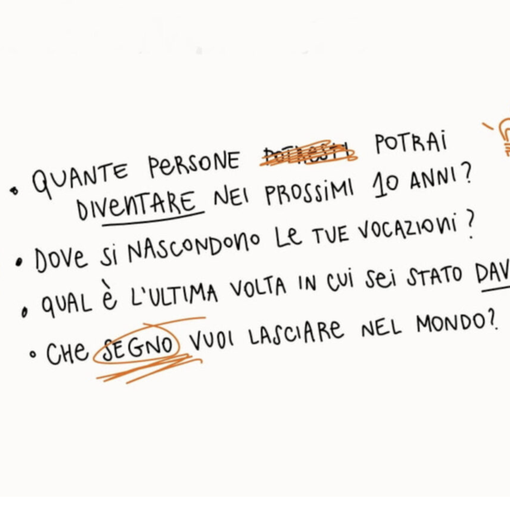 • QUANTE PERSONE POTRESTI POTRAI
DIVENTARE NEI PROSSIMI 10 ANNI?
• DOVE SI NASCONDONO LE TUE VOCAZIONI?
• QUAL È L'ULTIMA VOLTA IN CUI SEI STATO DAV
• CHE SEGNO VUOI LASCIARE NEL MONDO?